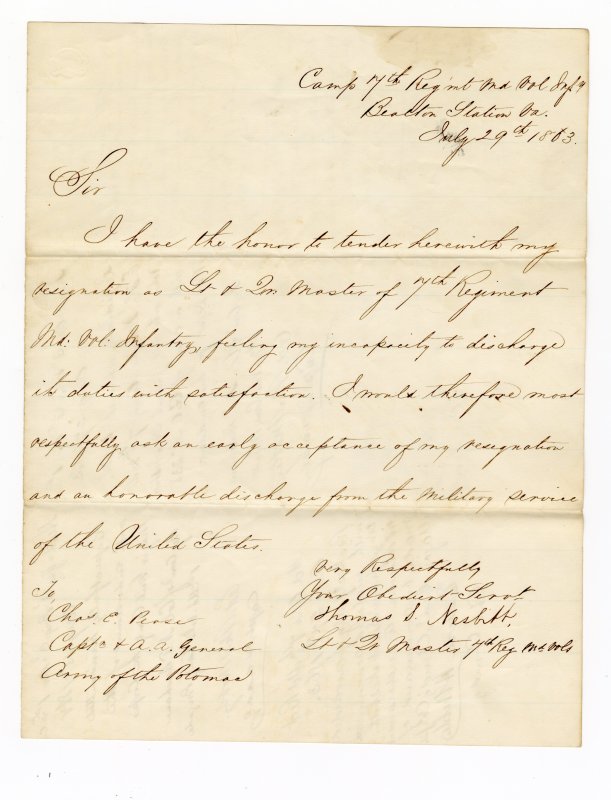 Camp 7th Reg'mt Md Vol Inf'y
Bealton Station Va.
July 29th 1863.
Sir
I have the honor to tender herewith my
resignation as Lt & Qr. Master of 7th Regiment
Md: Vol: Infantry, feeling my incapacity to discharge
its duties with satisfaction. I would therefore most
respectfully ask an early acceptance of my resignation
and an honorable discharge from the Military service
of the United States.
Very Respectfully
Your Obedient Servt
Thomas S. Nesbitt.
Lt & Qr Master 7th Reg Md Vols
To,
Chas. E. Perse
Captn & A. A. General
Army of the Potomac